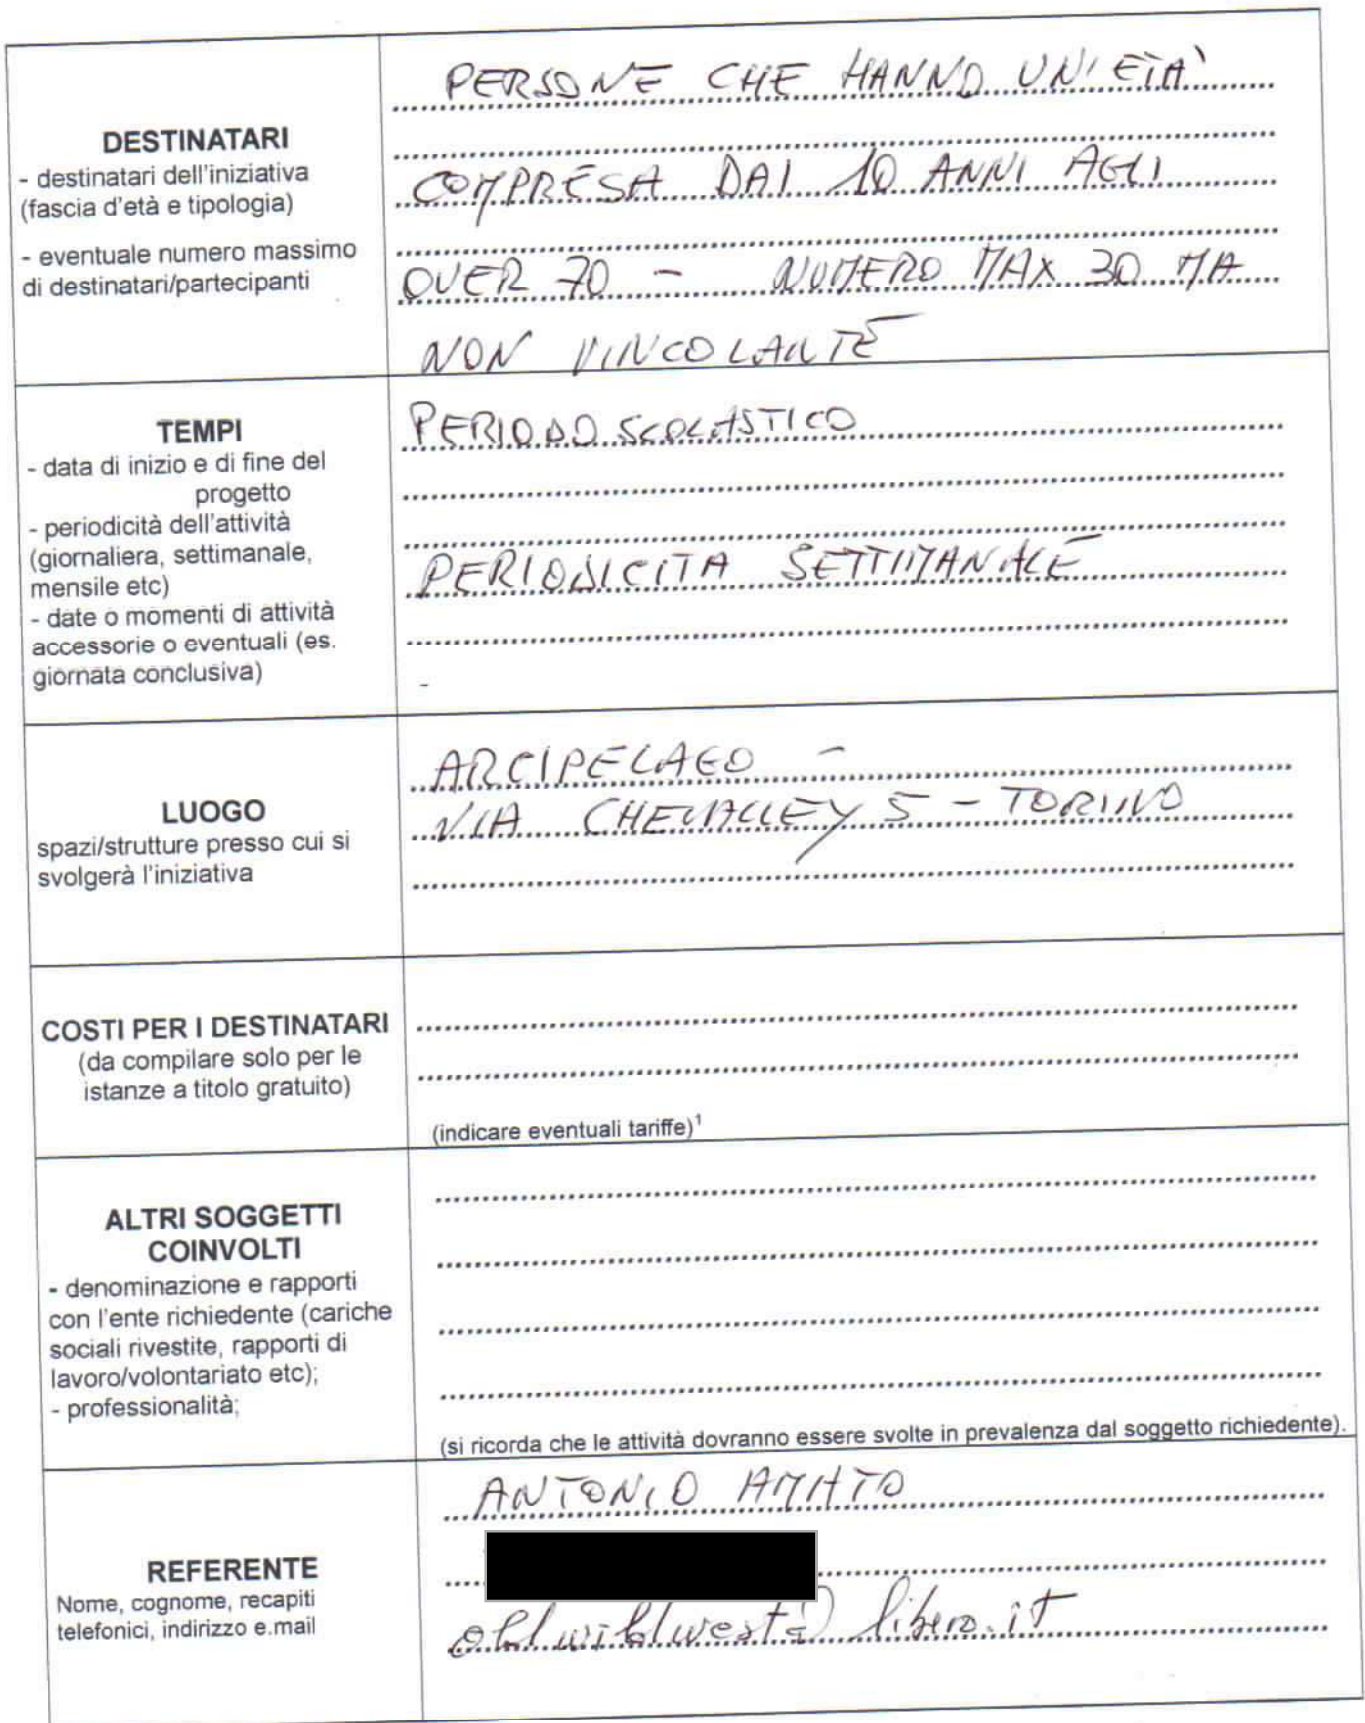 DESTINATARI
- destinatari dell'iniziativa
(fascia d'età e tipologia)
- eventuale numero massimo
di destinatari/partecipanti
PERSONE CHE HANNO UN'ETA'
COMPRESA DAI 10 ANNI AGLI
OVER 70 - NUMERO MAX 30 MA
NON VINCOLANTE
TEMPI
- data di inizio e di fine del
progetto
- periodicità dell'attività
(giornaliera, settimanale,
mensile etc)
- date o momenti di attività
accessorie o eventuali (es.
giornata conclusiva)
PERIODO SCOLASTICO
PERIODICITA SETTIMANALE
-
LUOGO
spazi/strutture presso cui si
svolgerà l'iniziativa
ARCIPELAGO -
VIA CHEVALLEY 5 - TORINO
COSTI PER I DESTINATARI
(da compilare solo per le
istanze a titolo gratuito)
(indicare eventuali tariffe)¹
ALTRI SOGGETTI
COINVOLTI
- denominazione e rapporti
con l'ente richiedente (cariche
sociali rivestite, rapporti di
lavoro/volontariato etc);
- professionalità;
(si ricorda che le attività dovranno essere svolte in prevalenza dal soggetto richiedente).
REFERENTE
Nome, cognome, recapiti
telefonici, indirizzo e.mail
ANTONIO AMATO
oldwildwest@libero.it